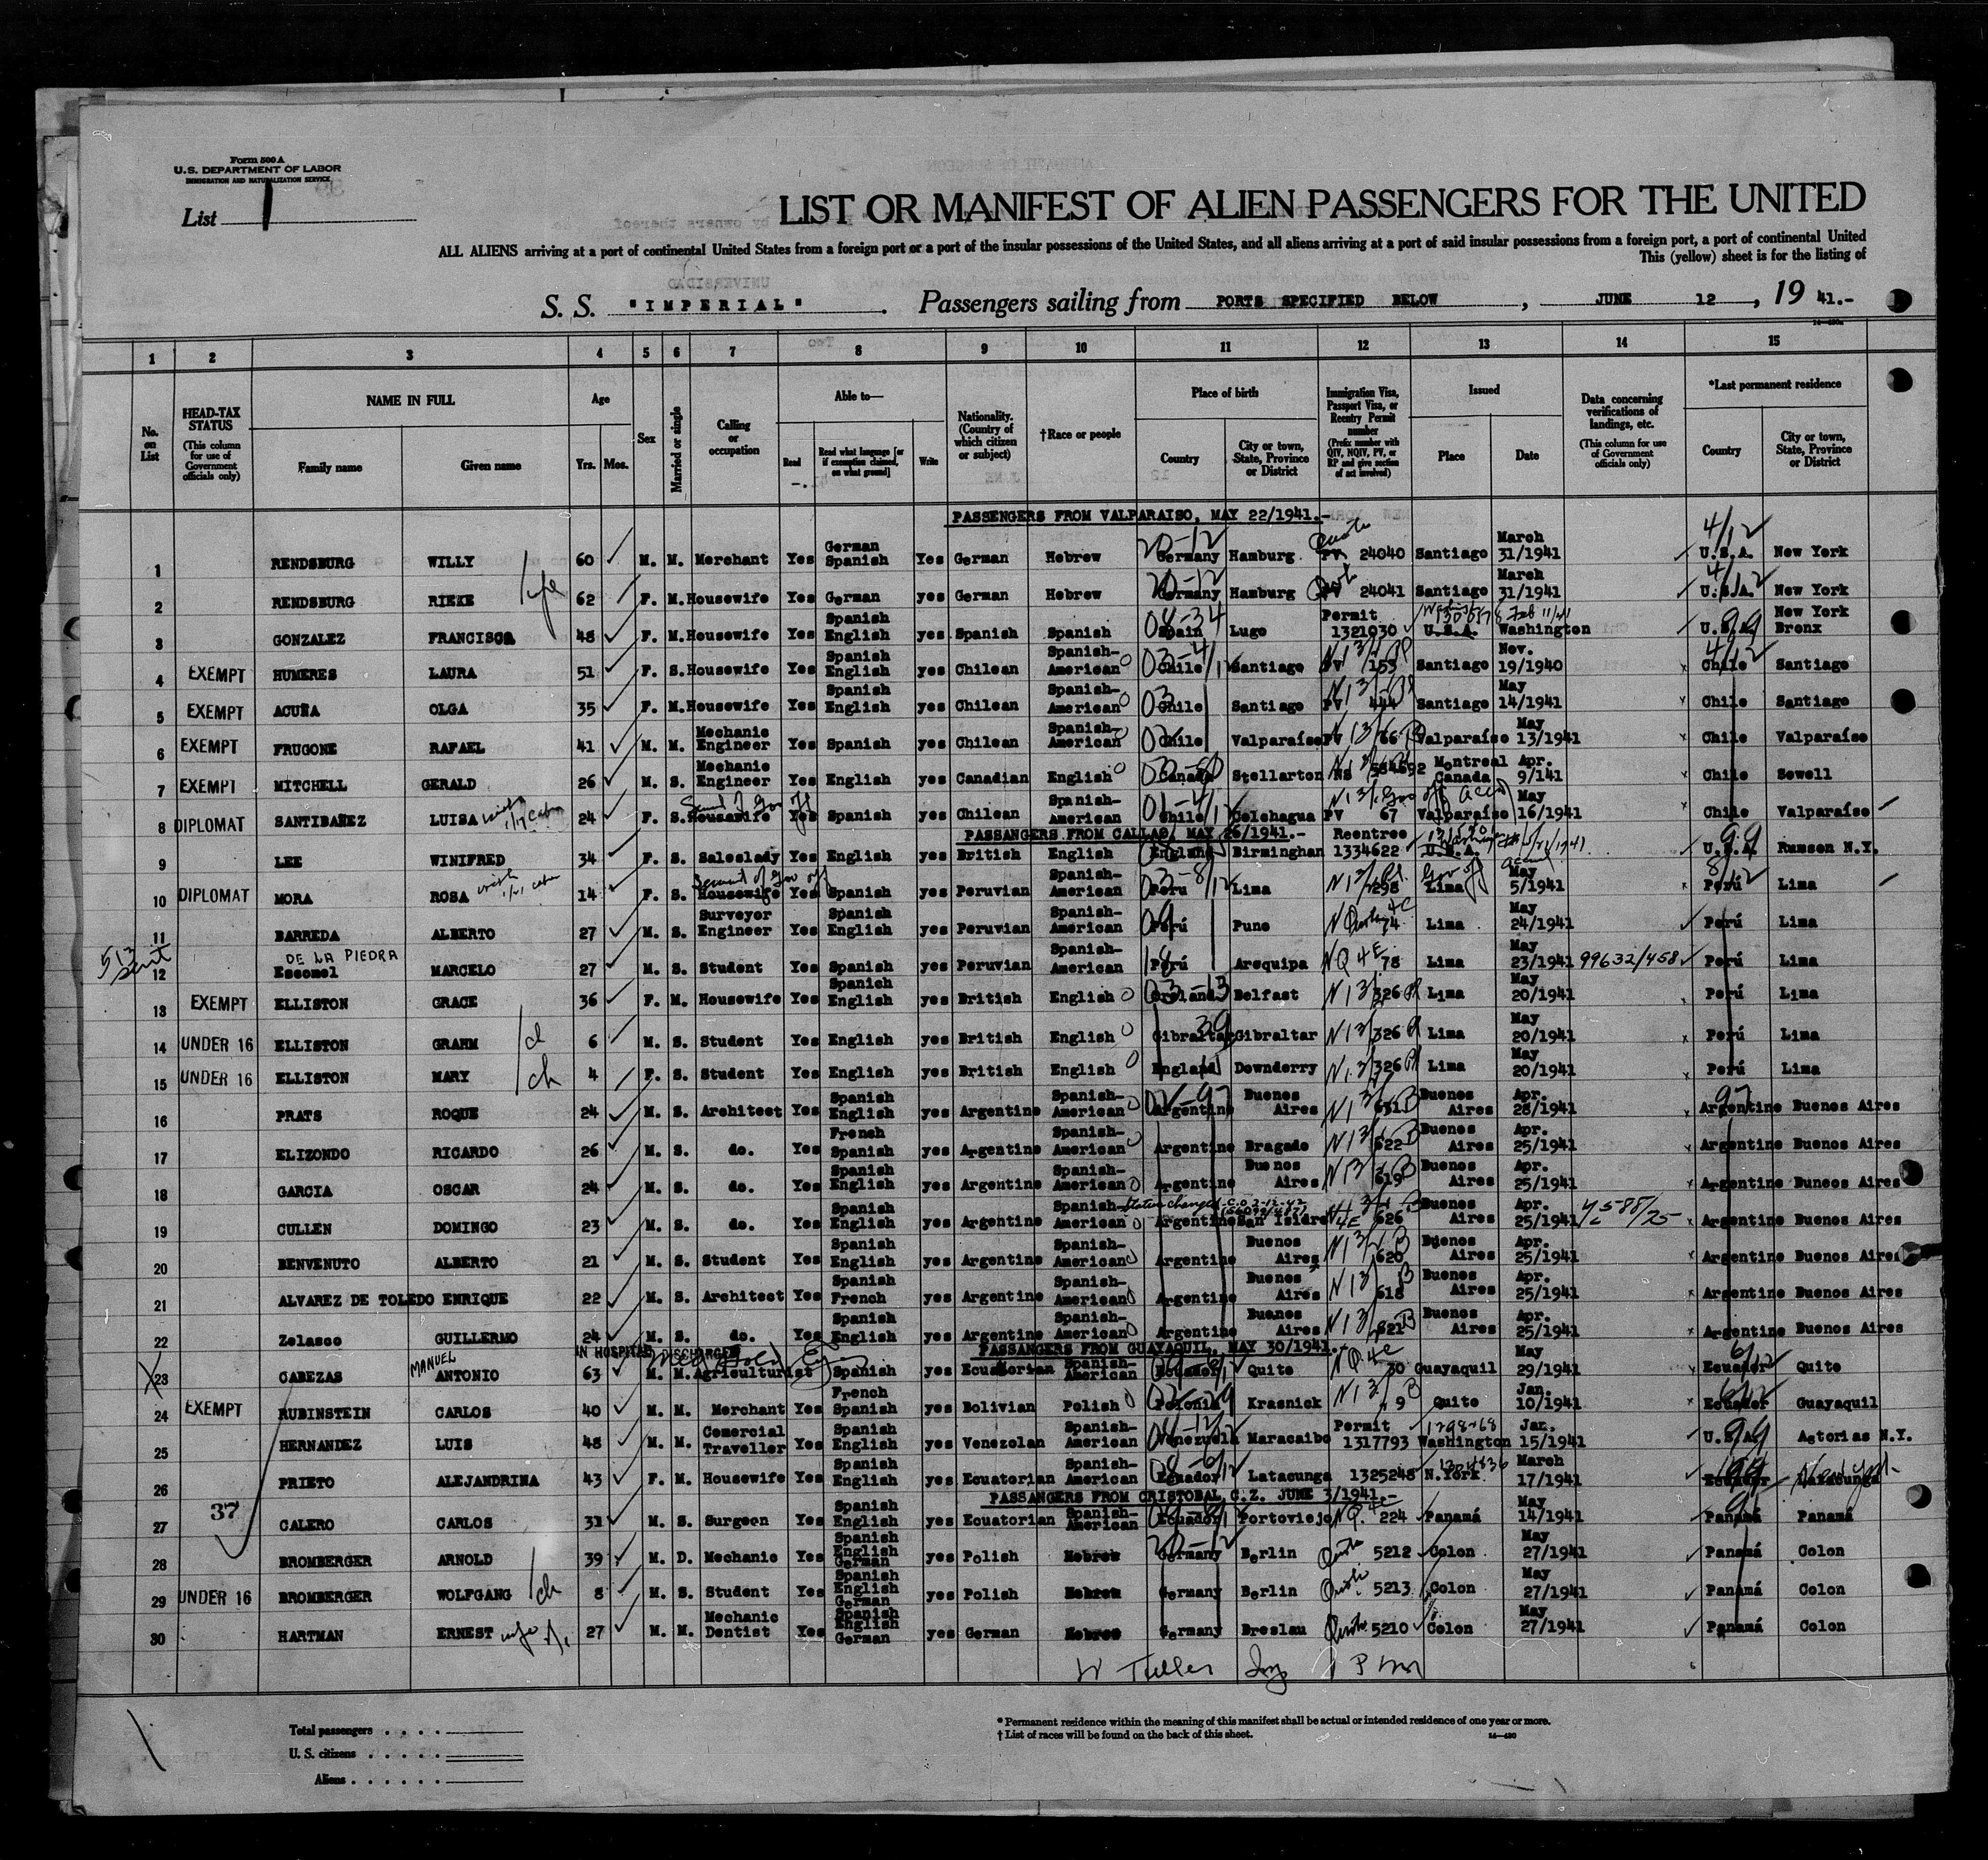 Form 500 A
U.S. DEPARTMENT OF LABOR
IMMIGRATION AND NATURALIZATION SERVICE
List 1
LIST OR MANIFEST OF ALIEN PASSENGERS FOR THE UNITED
ALL ALIENS arriving at a port of continental United States from a foreign port or a port of the insular possessions of the United States, and all aliens arriving at a port of said insular possessions from a foreign port, a port of continental United
This (yellow) sheet is for the listing of
S. S. "IMPERIAL". Passengers sailing from PORTS SPECIFIED BELOW, JUNE 12, 19 41.-
1 2 3 4 5 6 7 8 9 10 11 12 13 14 15
No. on List
HEAD-TAX STATUS (This column for use of Government officials only)
NAME IN FULL Family name Given name
Age Yrs. Mos.
Sex
Married or single
Calling or occupation
Able to— Read Read what language [or if exemption claimed, on what ground] Write
Nationality. (Country of which citizen or subject)
†Race or people
Place of birth Country City or town, State, Province or District
Immigration Visa, Passport Visa, or Reentry Permit number (Prefix number with QIV, NQIV, PV, or RP and give section of act involved)
Issued Place Date
Data concerning verifications of landings, etc. (This column for use of Government officials only)
*Last permanent residence Country City or town, State, Province or District
PASSENGERS FROM VALPARAISO, MAY 22/1941.-
1 RENDSBURG WILLY 60 M. M. Merchant Yes German Spanish Yes German Hebrew Germany Hamburg PV 24040 Santiago March 31/1941 U.S.A. New York
2 RENDSBURG RIEKE 62 F. M. Housewife Yes German yes German Hebrew Germany Hamburg PV 24041 Santiago March 31/1941 U.S.A. New York
3 GONZALEZ FRANCISCA 48 F. M. Housewife Yes Spanish English yes Spanish Spanish Spain Lugo Permit 1321030 U.S.A. Washington U.S.A. New York Bronx
4 EXEMPT HUMERES LAURA 51 F. S. Housewife Yes Spanish English yes Chilean Spanish-American Chile Santiago PV 153 Santiago Nov. 19/1940 Chile Santiago
5 EXEMPT ACUÑA OLGA 35 F. M. Housewife Yes Spanish English yes Chilean Spanish-American Chile Santiago PV 444 Santiago May 14/1941 Chile Santiago
6 EXEMPT FRUGONE RAFAEL 41 M. M. Mechanic Engineer Yes Spanish yes Chilean Spanish-American Chile Valparaíso PV 66 Valparaíso May 13/1941 Chile Valparaíso
7 EXEMPT MITCHELL GERALD 26 M. S. Mechanic Engineer Yes English yes Canadian English Canada Stellarton 584692 Montreal Canada Apr. 9/141 Chile Sewell
8 DIPLOMAT SANTIBAÑEZ LUISA 24 F. S. Housewife Yes Spanish yes Chilean Spanish-American Chile Colchagua PV 67 Valparaíso May 16/1941 Chile Valparaíso
PASSANGERS FROM CALLAO, MAY 26/1941.-
9 LEE WINIFRED 34 F. S. Saleslady Yes English yes British English England Birminghan Reentree 1334622 U.S.A. U.S.A. Rumson N.Y.
10 DIPLOMAT MORA ROSA 14 F. S. Housewife Yes Spanish yes Peruvian Spanish-American Perú Lima 7298 Lima May 5/1941 Perú Lima
11 BARREDA ALBERTO 27 M. S. Surveyor Engineer Yes Spanish English yes Peruvian Spanish-American Perú Puno 74 Lima May 24/1941 Perú Lima
12 DE LA PIEDRA Escomel MARCELO 27 M. S. Student Yes Spanish yes Peruvian Spanish-American Perú Arequipa NQ 4E 78 Lima May 23/1941 99632/458 Perú Lima
13 EXEMPT ELLISTON GRACE 36 F. M. Housewife Yes Spanich English yes British English Belfast 326 Lima May 20/1941 Perú Lima
14 UNDER 16 ELLISTON GRAHM 6 M. S. Student Yes English yes British English Gibraltar Gibraltar 326 Lima May 20/1941 Perú Lima
15 UNDER 16 ELLISTON MARY ch 4 F. S. Student Yes English yes British English England Downderry 326 Lima May 20/1941 Perú Lima
16 PRATS ROQUE 24 M. S. Architect Yes Spanish English yes Argentine Spanish-American Argentine Buenos Aires 631 Buenos Aires Apr. 28/1941 Argentine Buenos Aires
17 ELIZONDO RICARDO 26 M. S. do. Yes French Spanish yes Argentine Spanish-American Argentine Bragado 622 Buenos Aires Apr. 25/1941 Argentine Buenos Aires
18 GARCIA OSCAR 24 M. S. do. Yes Spanish English yes Argentine Spanish-American Argentine Buenos Aires 619 Buenos Aires Apr. 25/1941 Argentine Buneos Aires
19 CULLEN DOMINGO 23 M. S. do. Yes Spanish English yes Argentine Spanish-American Argentine San Isidro 626 Buenos Aires Apr. 25/1941 Argentine Buenos Aires
20 BENVENUTO ALBERTO 21 M. S. Student Yes Spanish English yes Argentine Spanish-American Argentine Buenos Aires 620 Buenos Aires Apr. 25/1941 Argentine Buenos Aires
21 ALVAREZ DE TOLEDO ENRIQUE 22 M. S. Architect Yes Spanish French yes Argentine Spanish-American Argentine Buenos Aires 618 Buenos Aires Apr. 25/1941 Argentine Buenos Aires
22 Zolasco GUILLERMO 24 M. S. do. Yes Spanish English yes Argentine Spanish-American Argentine Buenos Aires 621 Buenos Aires Apr. 25/1941 Argentine Buenos Aires
IN HOSPITAL DISCHARGED
PASSANGERS FROM GUAYAQUIL, MAY 30/1941.-
23 CABEZAS MANUEL ANTONIO 63 M. M. Agriculturist Spanish yes Ecuatorian Spanish-American Ecuador Quito 30 Guayaquil May 29/1941 Ecuador Quito
24 EXEMPT RUBINSTEIN CARLOS 40 M. M. Merchant Yes French Spanish yes Bolivian Polish Polonia Krasnick 9 Quito Jan. 10/1941 Ecuador Guayaquil
25 HERNANDEZ LUIS 48 M. M. Comercial Traveller Yes Spanish English yes Venezolan Spanish-American Venezuela Maracaibo Permit 1317793 Washington Jan. 15/1941 U.S.A. Astorias N.Y.
26 PRIETO ALEJANDRINA 43 F. M. Housewife Yes Spanish English yes Ecuatorian Spanish-American Ecuador Latacunga 1325248 N.York March 17/1941 Ecuador Latacunga New York
PASSANGERS FROM CRISTOBAL C.Z. JUNE 3/1941.-
27 37 CALERO CARLOS 31 M. S. Surgeon Yes Spanish English yes Ecuatorian Spanish-American Ecuador Portoviejo 224 Panamá May 14/1941 Panamá Panamá
28 BROMBERGER ARNOLD 39 M. D. Mechanic Yes Spanish English German yes Polish Hebrew Germany Berlin 5212 Colon May 27/1941 Panamá Colon
29 UNDER 16 BROMBERGER WOLFGANG ch 8 M. S. Student Yes Spanish English German yes Polish Hebrew Germany Berlin 5213 Colon May 27/1941 Panamá Colon
30 HARTMAN ERNEST 27 M. M. Mechanic Dentist Yes Spanish English German yes German Hebrew Germany Breslau 5210 Colon May 27/1941 Panamá Colon
Total passengers . . . .
U. S. citizens . . . . .
Aliens . . . . . .
* Permanent residence within the meaning of this manifest shall be actual or intended residence of one year or more.
† List of races will be found on the back of this sheet.